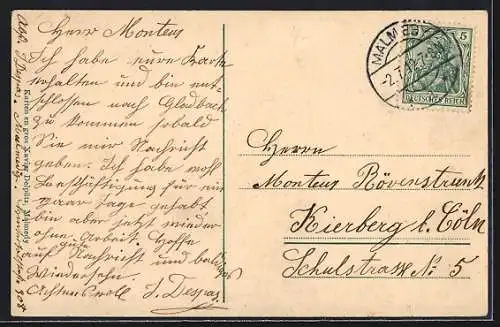 Herr Monteus
Ich habe eure Karte
erhalten und bin ent-
schlossen nach Gladbach
zu kommen sobald
Sie mir Nachricht
geben. Ich habe wohl
Beschäftigung für ein
paar Tage gehabt
bin aber jetzt wieder
ohne Arbeit. Hoffe
auf gute Nachricht und baldiges
Wiedersehn.
Achtungsvoll J. Despas
Absp. J. Despas Malmedy
Karten en gros Xavier Delputz, Malmedy
MALMEDY
-2.7.12.7-8
5
DEUTSCHES REICH
Herrn
Monteus Rövenstrunk
Kierberg b. Cöln
Schulstrasse No. 5